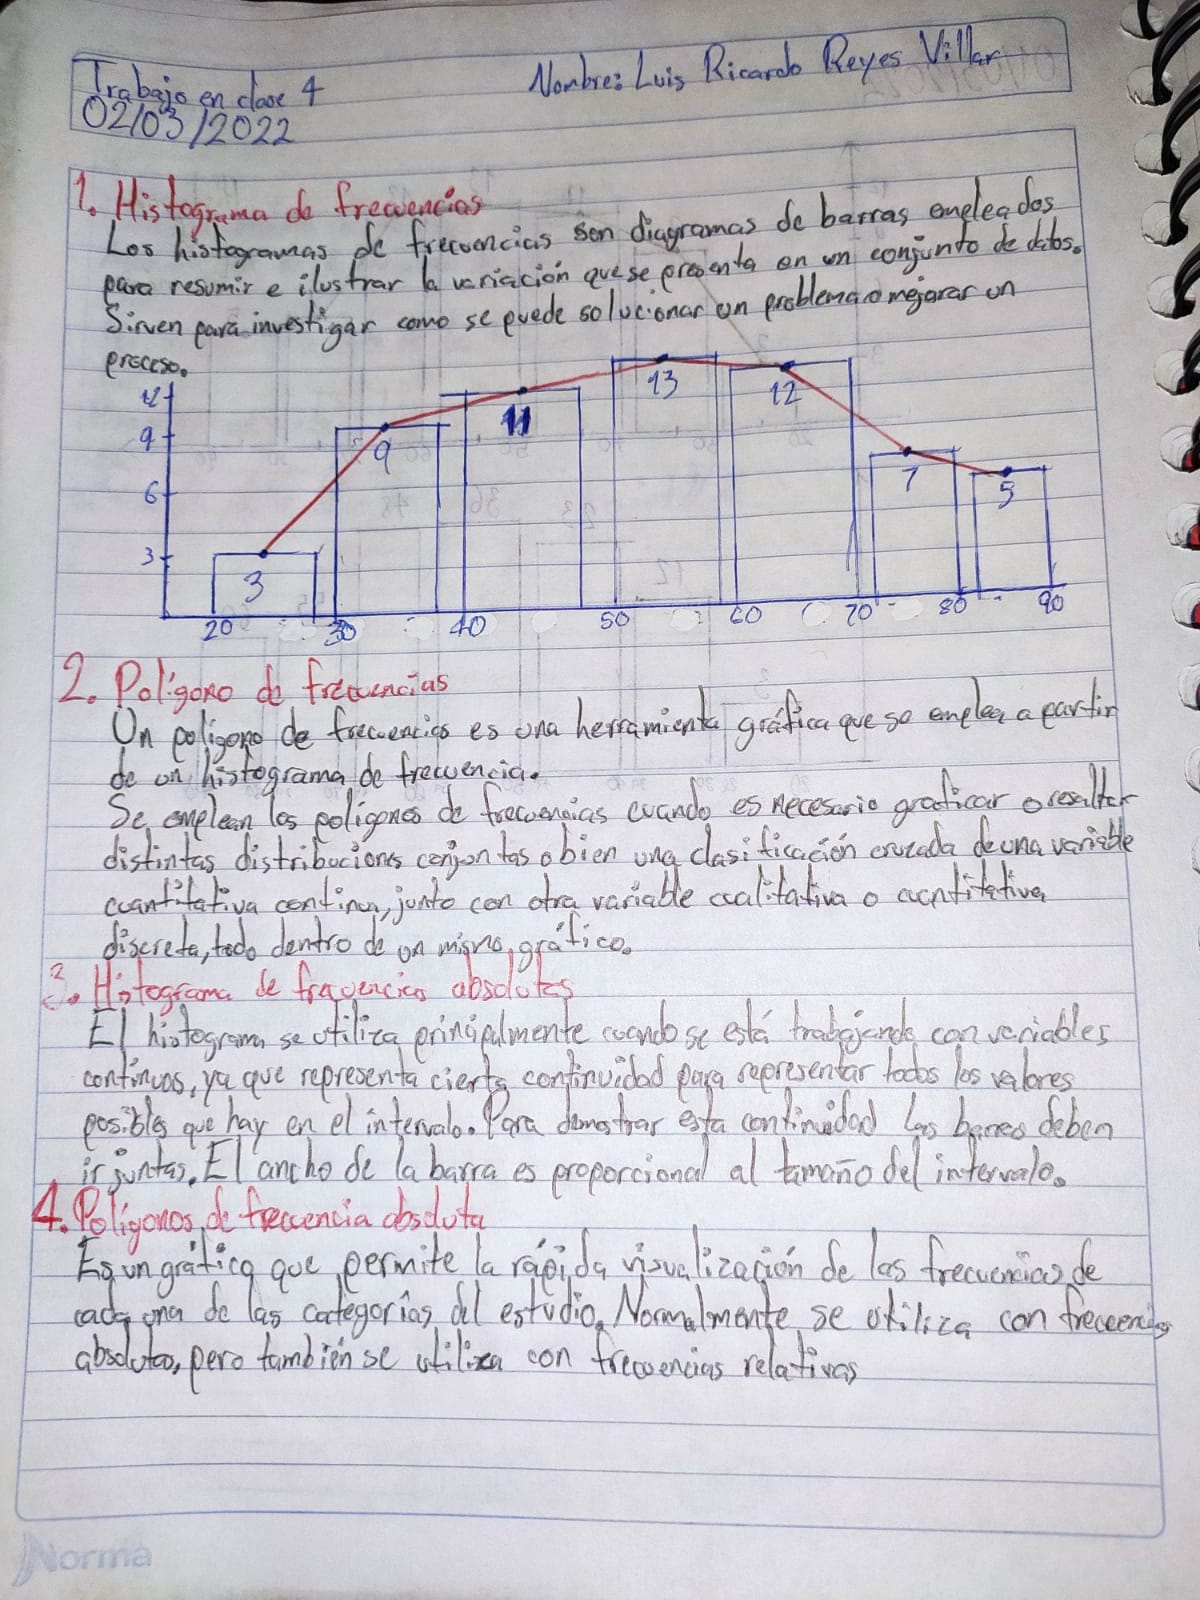 Trabajo en clase 4
Nombre: Luis Ricardo Reyes Villar
02/03/2022
1. Histograma de frecuencias
Los histogramas de frecuencias son diagramas de barras empleados
para resumir e ilustrar la variación que se presenta en un conjunto de datos.
Sirven para investigar como se puede solucionar un problema o mejorar un
proceso.
12
9
6
3
3 9 11 13 12 7 5
20 30 40 50 60 70 80 90
2. Polígono de frecuencias
Un polígono de frecuencias es una herramienta gráfica que se emplea a partir
de un histograma de frecuencia.
Se emplean los polígonos de frecuencias cuando es necesario graficar o resaltar
distintas distribuciones conjuntas o bien una clasificación cruzada de una variable
cuantitativa continua, junto con otra variable cualitativa o cuantitativa
discreta, todo dentro de un mismo gráfico.
3. Histograma de frecuencias absolutas
El histograma se utiliza principalmente cuando se está trabajando con variables
continuas, ya que representa cierta continuidad para representar todos los valores
posibles que hay en el intervalo. Para demostrar esta continuidad las barras deben
ir juntas. El ancho de la barra es proporcional al tamaño del intervalo.
4. Polígonos de frecuencia absoluta
Es un gráfico que permite la rápida visualización de las frecuencias de
cada una de las categorías del estudio. Normalmente se utiliza con frecuencias
absolutas, pero también se utiliza con frecuencias relativas
Norma